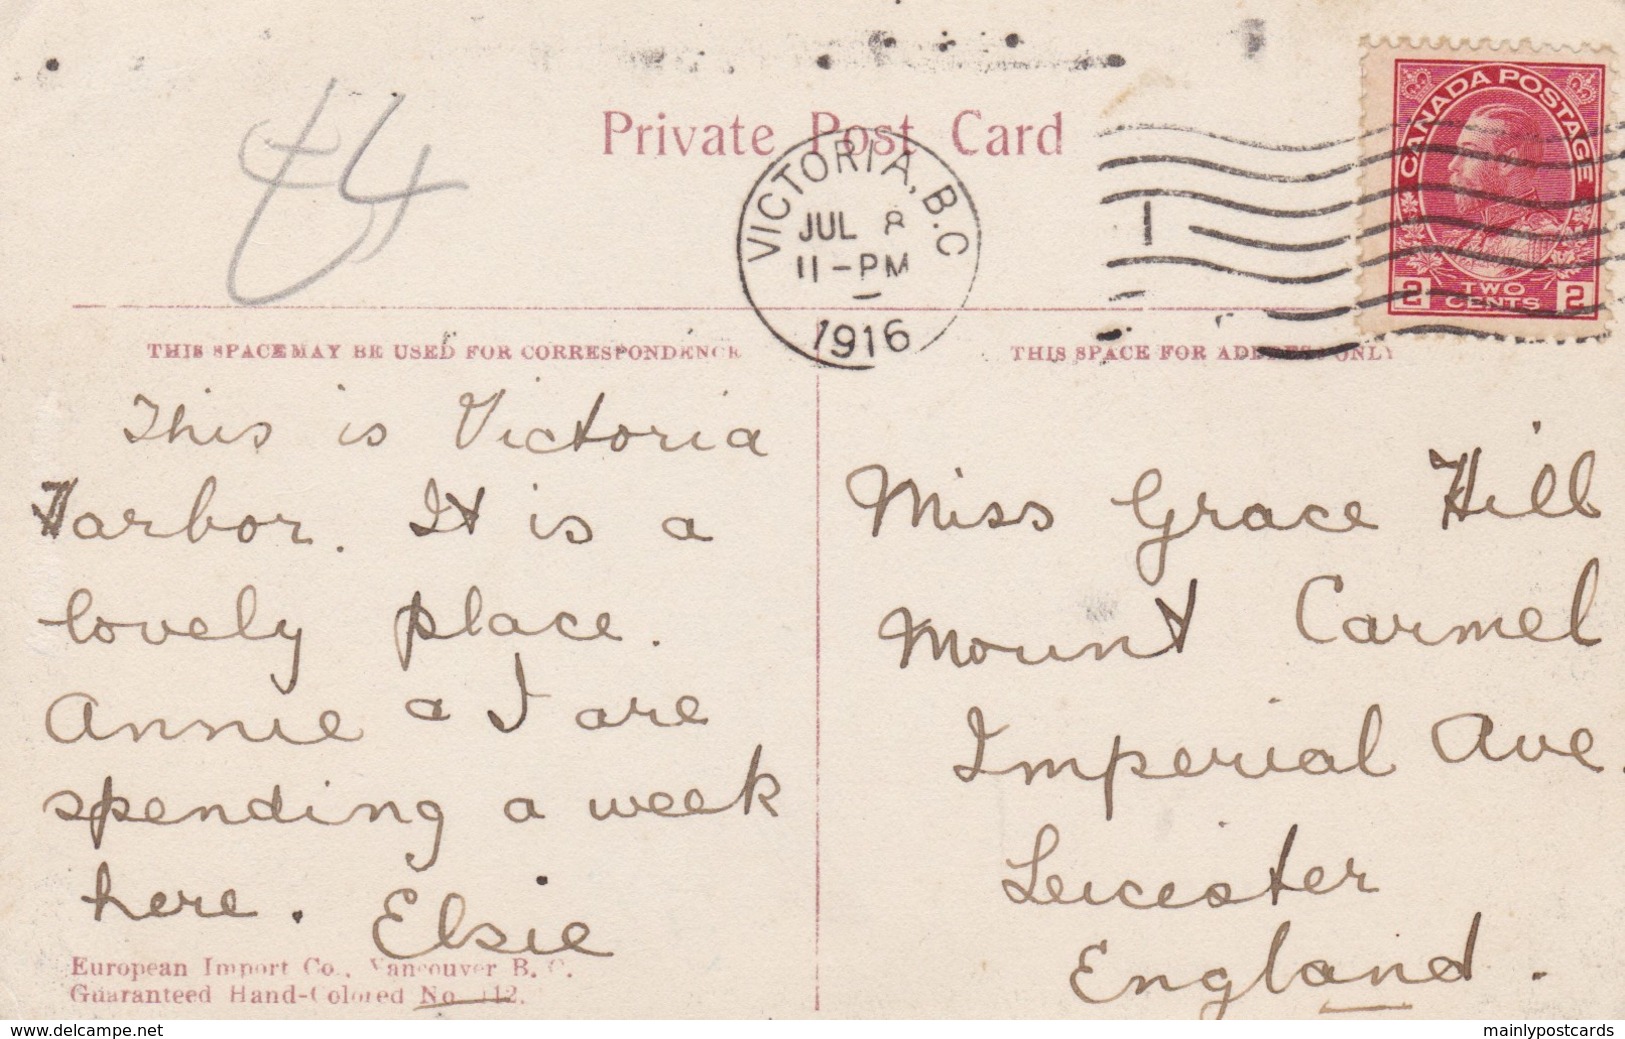 Private Post Card
CANADA POSTAGE
2 TWO CENTS 2
VICTORIA, B.C.
JUL 8
11-PM
1916
1
THIS SPACE MAY BE USED FOR CORRESPONDENCE
THIS SPACE FOR ADDRESS ONLY
This is Victoria
Harbor. It is a
lovely place.
Annie & I are
spending a week
here. Elsie
Miss Grace Hill
Mount Carmel
Imperial Ave.
Leicester
England.
European Import Co., Vancouver B. C.
Guaranteed Hand-Colored No. 112.
www.delcampe.net
mainlypostcards